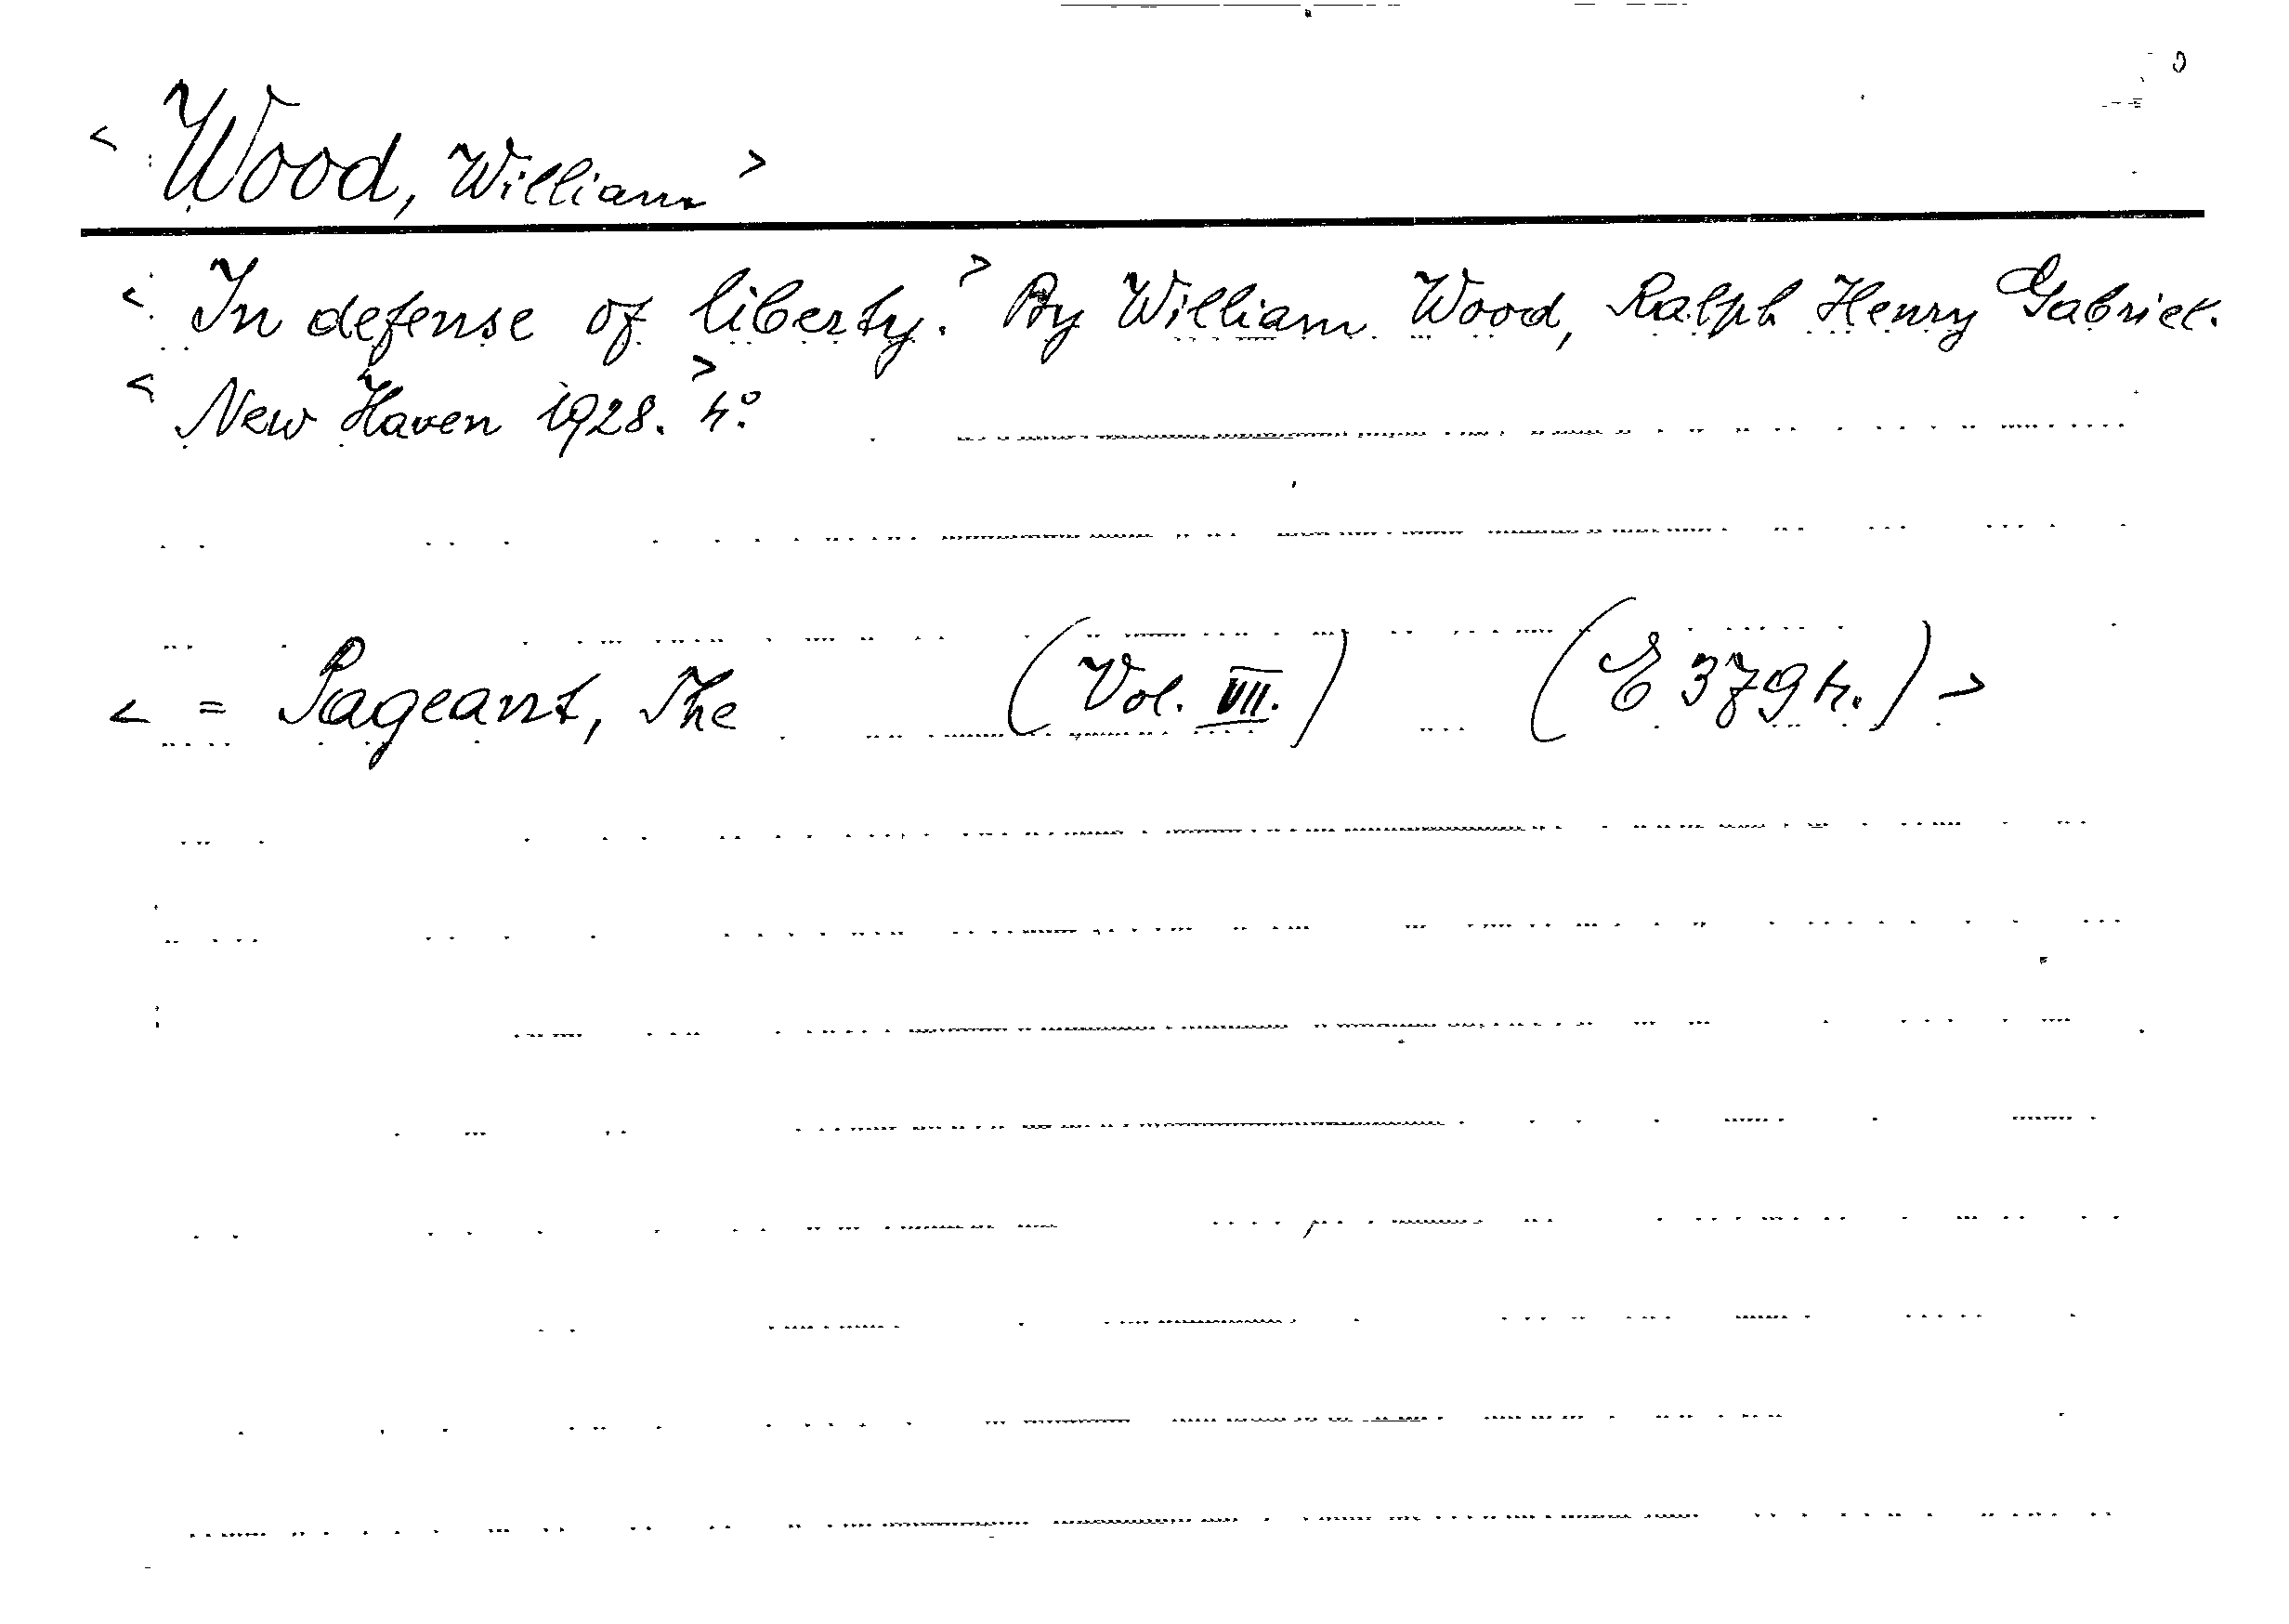 < Wood, William >
< In defense of liberty. > By William Wood, Ralph Henry Gabriel.
< New Haven 1928. > 4°.
< = Pageant, The (Vol. VII.) (E 379 h.) >